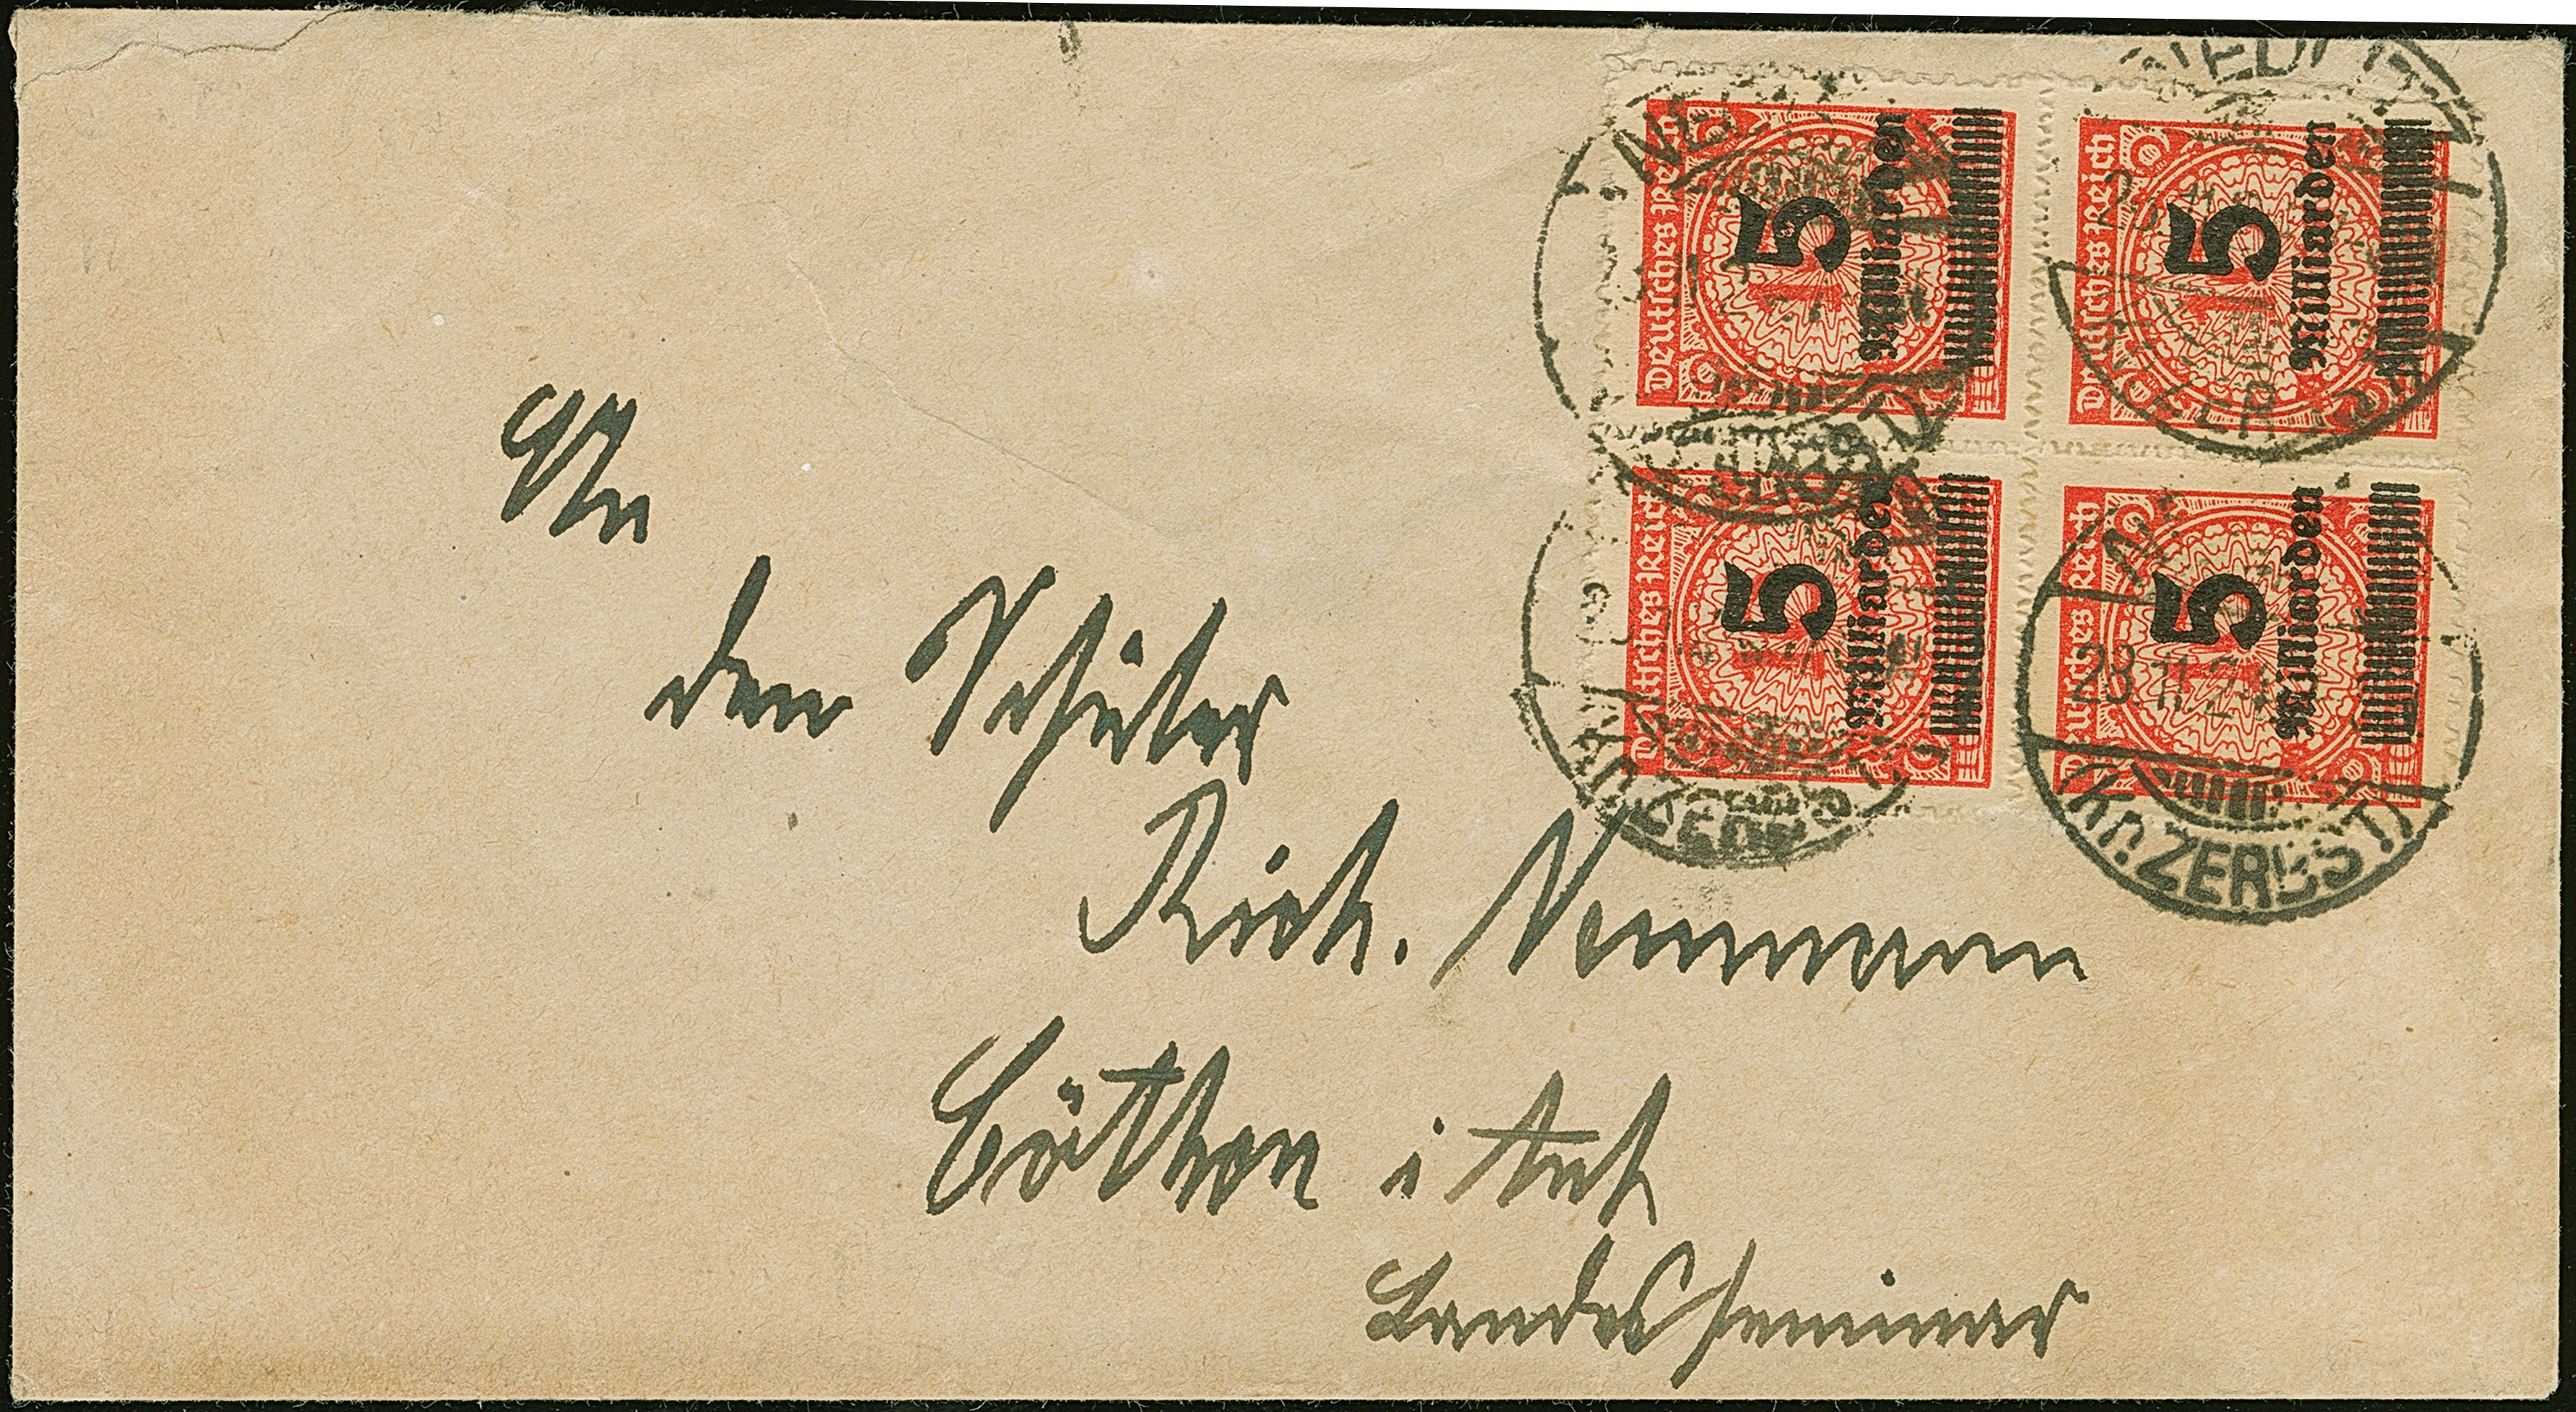 Deutsches Reich
5
Milliarden
Deutsches Reich
5
Milliarden
Deutsches Reich
5
Milliarden
Deutsches Reich
5
Milliarden
23.11.2
(Kr. ZERBST)
An
den Schüler
Rich. Neumann
Cöthen i Anh
Landesseminar